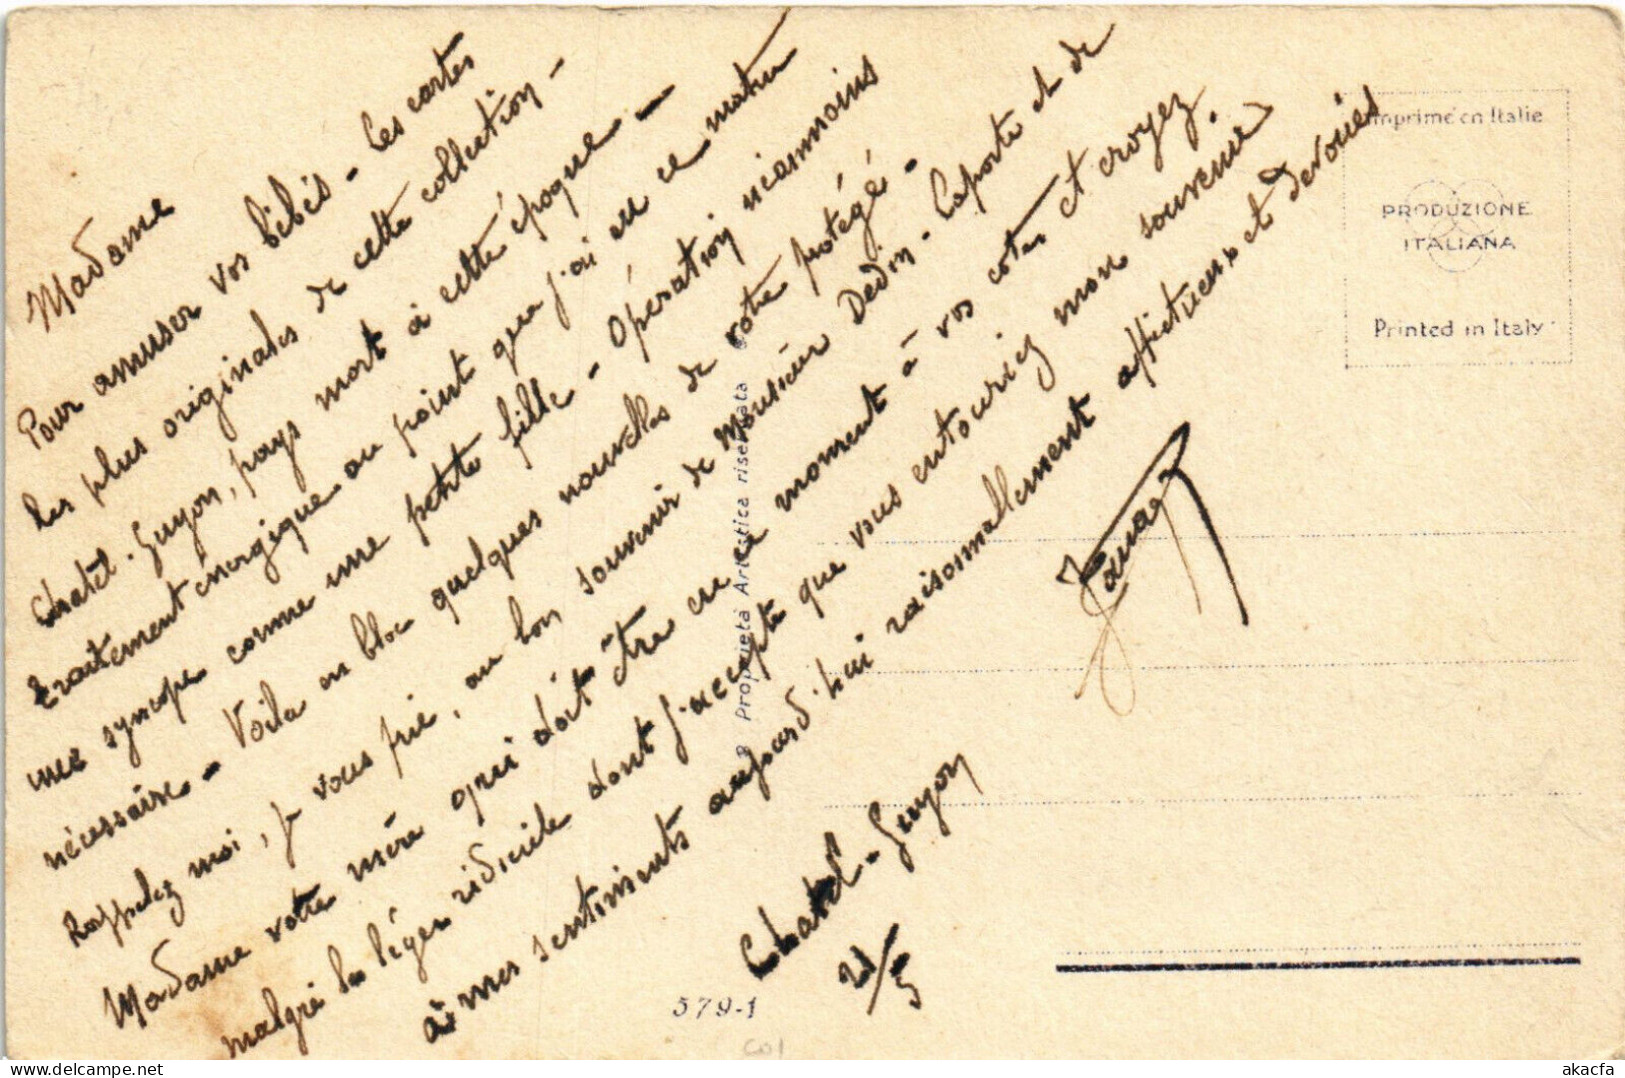 Madame
Pour amuser vos bébés - les cartes
les plus originales de cette collection -
Chatel-Guyon, pays mort à cette époque -
Traitement énergique au point que j'ai eu ce matin
une syncope comme une petite fille - Opération néanmoins
nécessaire - Voila en bloc quelques nouvelles de votre protégé -
Rappelez moi, je vous prie, au bon souvenir de Monsieur Dedin - Laporte et de
Madame votre mère qui doit être en ce moment à vos cotés et croyez,
malgré le léger ridicule dont j'accepte que vous entouriez mon souvenir,
à mes sentiments aujourd'hui raisonnablement affectueux et dévoués
Chatel-Guyon
21/5
Imprimé en Italie
PRODUZIONE
ITALIANA
Printed in Italy
Proprietà Artistica riservata
579-1
Col
akacfa